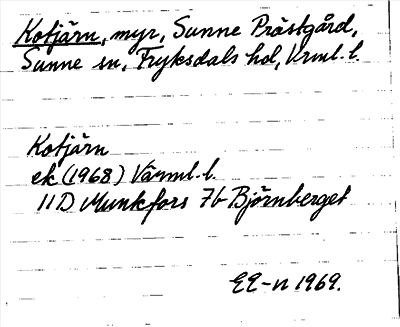 Kotjärn, myr, Sunne Prästgård,
Sunne sn, Fryksdals hd, Vrml. l.
Kotjärn
ek (1968) Värml. l.
11D Munkfors 7b Björnberget
EE-n 1969.